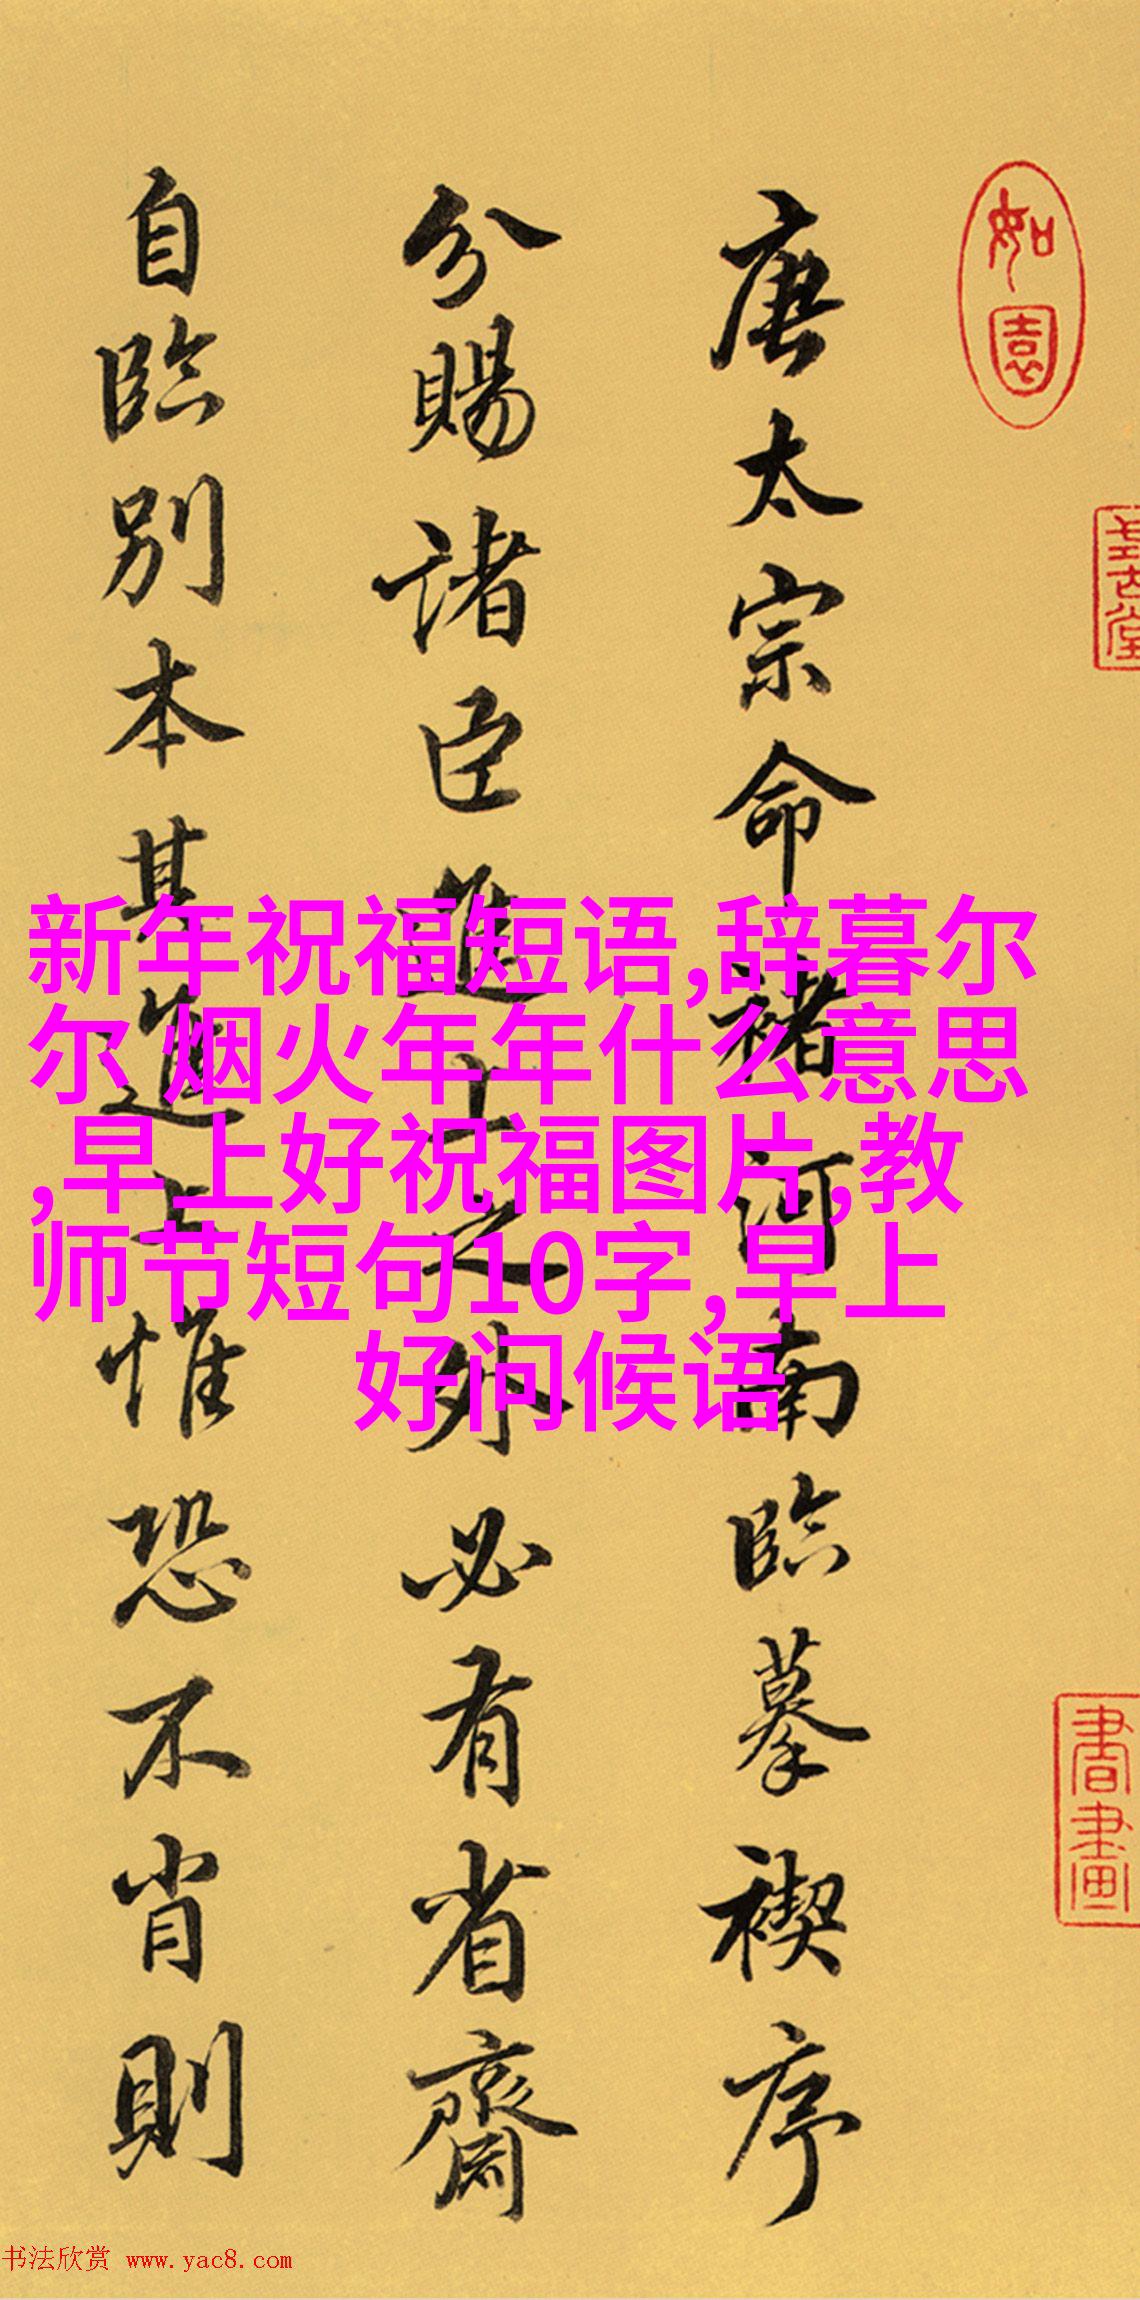 如園
書畫
唐太宗命褚河南臨摹禊序
分賜諸臣進上之外必有省齋
自臨別本其進上惟恐不肖則
新年祝福短语,辞暮尔
尔 烟火年年什么意思
,早上好祝福图片,教
师节短句10字,早上
好问候语
书法欣赏 www.yac8.com